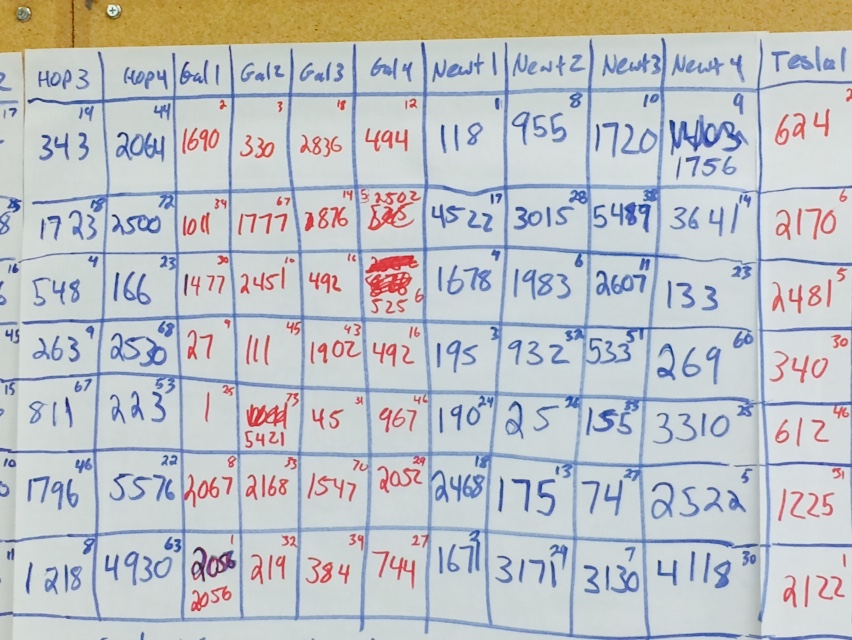 2 HOP3 HOP4 Gal1 Gal2 Gal3 Gal4 Newt1 Newt2 Newt3 Newt4 Tesla1
17 19 44 2 3 18 12 11 8 10 9 2
343 2064 1690 330 2836 494 118 955 1720 624
1756
25 18 72 34 67 14 5 2502 17 28 38 14 6
8 1723 2500 1011 1777 1876 4522 3015 5489 3641 2170
16 4 23 30 10 16 4 6 11 23 5
548 166 1477 2451 492 1678 1983 2607 133 2481
525 6
45 9 68 9 45 43 16 3 32 51 60 30
263 2530 27 111 1902 492 195 932 533 269 340
15 67 53 25 73 31 46 24 26 35 25 46
811 223 1 45 967 190 25 155 3310 612
5421
10 46 22 8 33 70 29 18 13 27 5 31
1796 5576 2067 2168 1547 2052 2468 175 74 2522 1225
11 8 63 1 32 39 27 2 29 7 30 1
1218 4930 2056 219 384 744 1671 3171 3130 4118 2122
2056